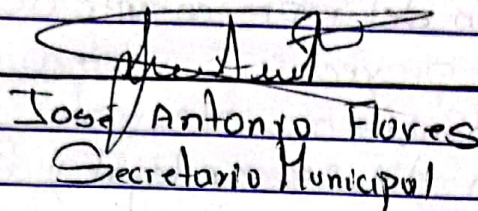 José Antonio Flores
Secretario Municipal